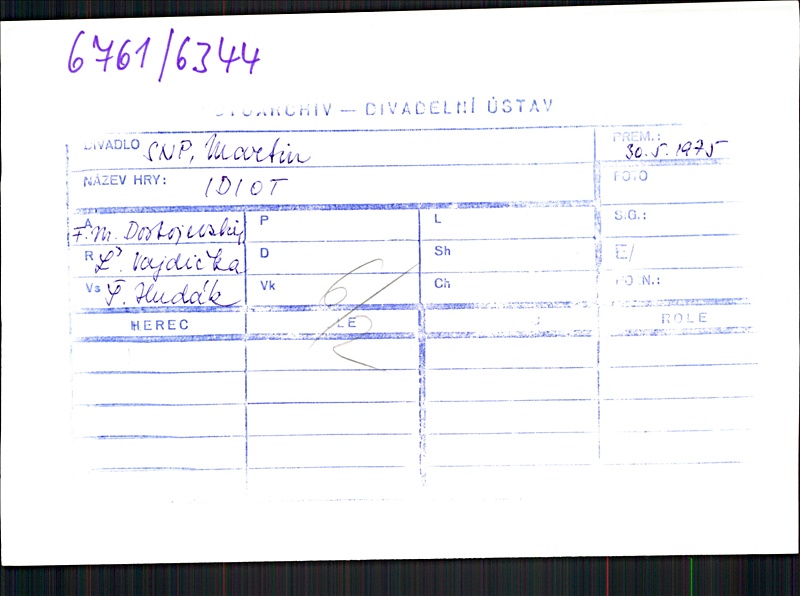 6761/6344
FOTOARCHIV — DIVADELNÍ ÚSTAV
DIVADLO SNP, Martin
PREM.: 30.5.1975
NÁZEV HRY: IDIOT
FOTO
A F. M. Dostojevskij
P
L
S.G.:
R Ľ. Vajdička
D
Sh
E/
Vs F. Hudák
Vk
Ch
HEREC
ROLE